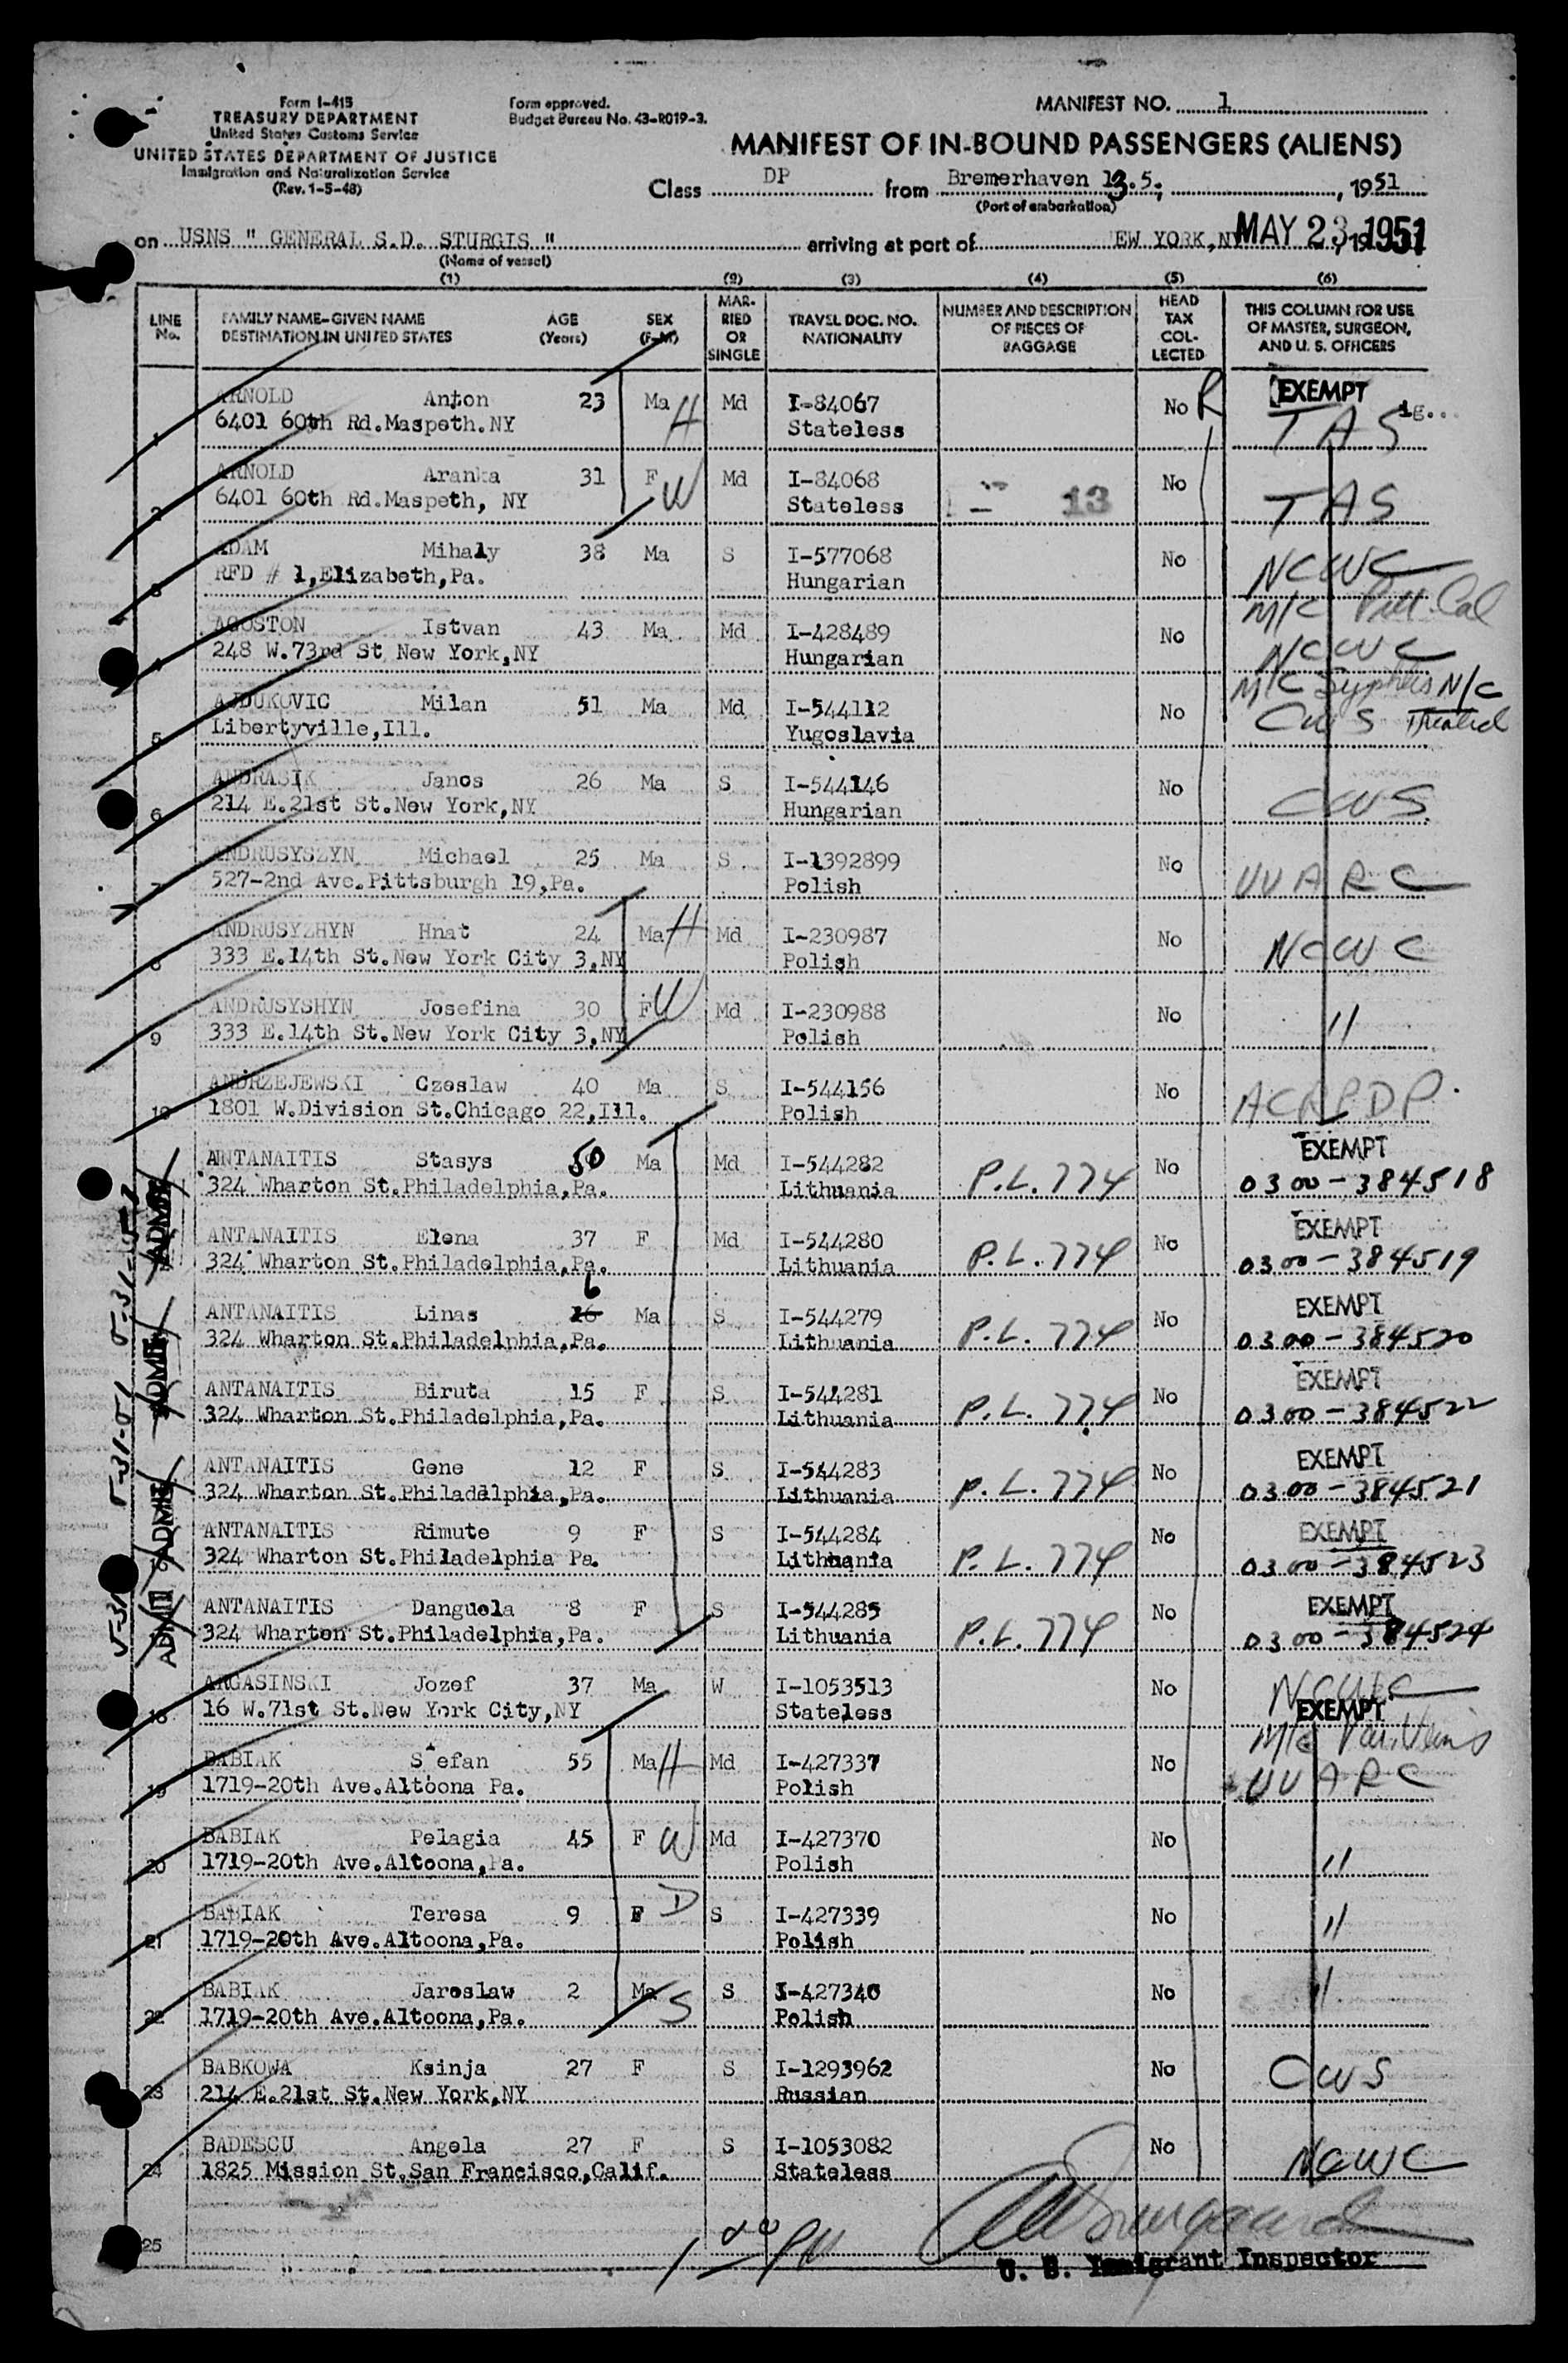 Form I-415
TREASURY DEPARTMENT
United States Customs Service
UNITED STATES DEPARTMENT OF JUSTICE
Immigration and Naturalization Service
(Rev. 1-5-48)
Form approved.
Budget Bureau No. 43-R019-3.
MANIFEST NO. 1
MANIFEST OF IN-BOUND PASSENGERS (ALIENS)
Class DP from Bremerhaven 13.5., 1951
(Port of embarkation)
on USNS " GENERAL S.D. STURGIS " arriving at port of EW YORK,NY MAY 23 1951
(Name of vessel)
(1) (2) (3) (4) (5) (6)
LINE No. FAMILY NAME-GIVEN NAME DESTINATION IN UNITED STATES AGE (Years) SEX (F-M) MARRIED OR SINGLE TRAVEL DOC. NO. NATIONALITY NUMBER AND DESCRIPTION OF PIECES OF BAGGAGE HEAD TAX COLLECTED THIS COLUMN FOR USE OF MASTER, SURGEON, AND U. S. OFFICERS
1 ARNOLD Anton 23 Ma H Md I-84067 No R EXEMPT
6401 60th Rd.Maspeth.NY Stateless TAS
2 ARNOLD Aranka 31 F W Md I-84068 No
6401 60th Rd.Maspeth, NY Stateless 13 TAS
3 ADAM Mihaly 38 Ma S I-577068 No NCWC
RFD # 1,Elizabeth,Pa. Hungarian
M/C Pul. Cal
4 AGOSTON Istvan 43 Ma Md I-428489 No NCWC
248 W.73rd St New York,NY Hungarian
M/C Syphilis N/C
5 AJDUKOVIC Milan 51 Ma Md I-544112 No CWS Treated
Libertyville,Ill. Yugoslavia
6 ANDRASIK Janos 26 Ma S I-544146 No CWS
214 E.21st St.New York,NY Hungarian
7 ANDRUSYSZYN Michael 25 Ma S I-1392899 No UUARC
527-2nd Ave.Pittsburgh 19,Pa. Polish
8 ANDRUSYZHYN Hnat 24 Ma H Md I-230987 No NCWC
333 E.14th St.New York City 3,NY Polish
9 ANDRUSYSHYN Josefina 30 F W Md I-230988 No "
333 E.14th St.New York City 3,NY Polish
10 ANDRZEJEWSKI Czeslaw 40 Ma S I-544156 No ACRPDP.
1801 W.Division St.Chicago 22,Ill. Polish
ANTANAITIS Stasys 50 Ma Md I-544282 No EXEMPT
324 Wharton St.Philadelphia,Pa. Lithuania P.L. 774 0300-384518
ANTANAITIS Elena 37 F Md I-544280 No EXEMPT
324 Wharton St.Philadelphia,Pa. Lithuania P.L. 774 0300-384519
6
ANTANAITIS Linas 16 Ma S I-544279 No EXEMPT
324 Wharton St.Philadelphia,Pa. Lithuania P.L. 774 0300-384520
ANTANAITIS Biruta 15 F S I-544281 No EXEMPT
324 Wharton St.Philadelphia,Pa. Lithuania P.L. 774 0300-384522
ANTANAITIS Gene 12 F S I-544283 No EXEMPT
324 Wharton St.Philadelphia,Pa. Lithuania P.L. 774 0300-384521
ANTANAITIS Rimute 9 F S I-544284 No EXEMPT
324 Wharton St.Philadelphia Pa. Lithuania P.L. 774 0300-384523
ANTANAITIS Danguola 8 F S I-544285 No EXEMPT
324 Wharton St.Philadelphia,Pa. Lithuania P.L. 774 0300-384524
18 ARGASINSKI Jozef 37 Ma W I-1053513 No NCWC
16 W.71st St.New York City,NY Stateless EXEMPT
M/C Var. Veins
19 BABIAK Stefan 55 Ma H Md I-427337 No UUARC
1719-20th Ave.Altoona Pa. Polish
20 BABIAK Pelagia 45 F W Md I-427370 No "
1719-20th Ave.Altoona,Pa. Polish
21 BABIAK Teresa 9 F D S I-427339 No "
1719-20th Ave.Altoona,Pa. Polish
22 BABIAK Jaroslaw 2 Ma S S I-427340 No "
1719-20th Ave.Altoona,Pa. Polish
23 BABKOWA Ksinja 27 F S I-1293962 No CWS
214 E.21st St.New York,NY Russian
24 BADESCU Angela 27 F S I-1053082 No NCWC
1825 Mission St.San Francisco,Calif. Stateless
25
U. S. Immigrant Inspector